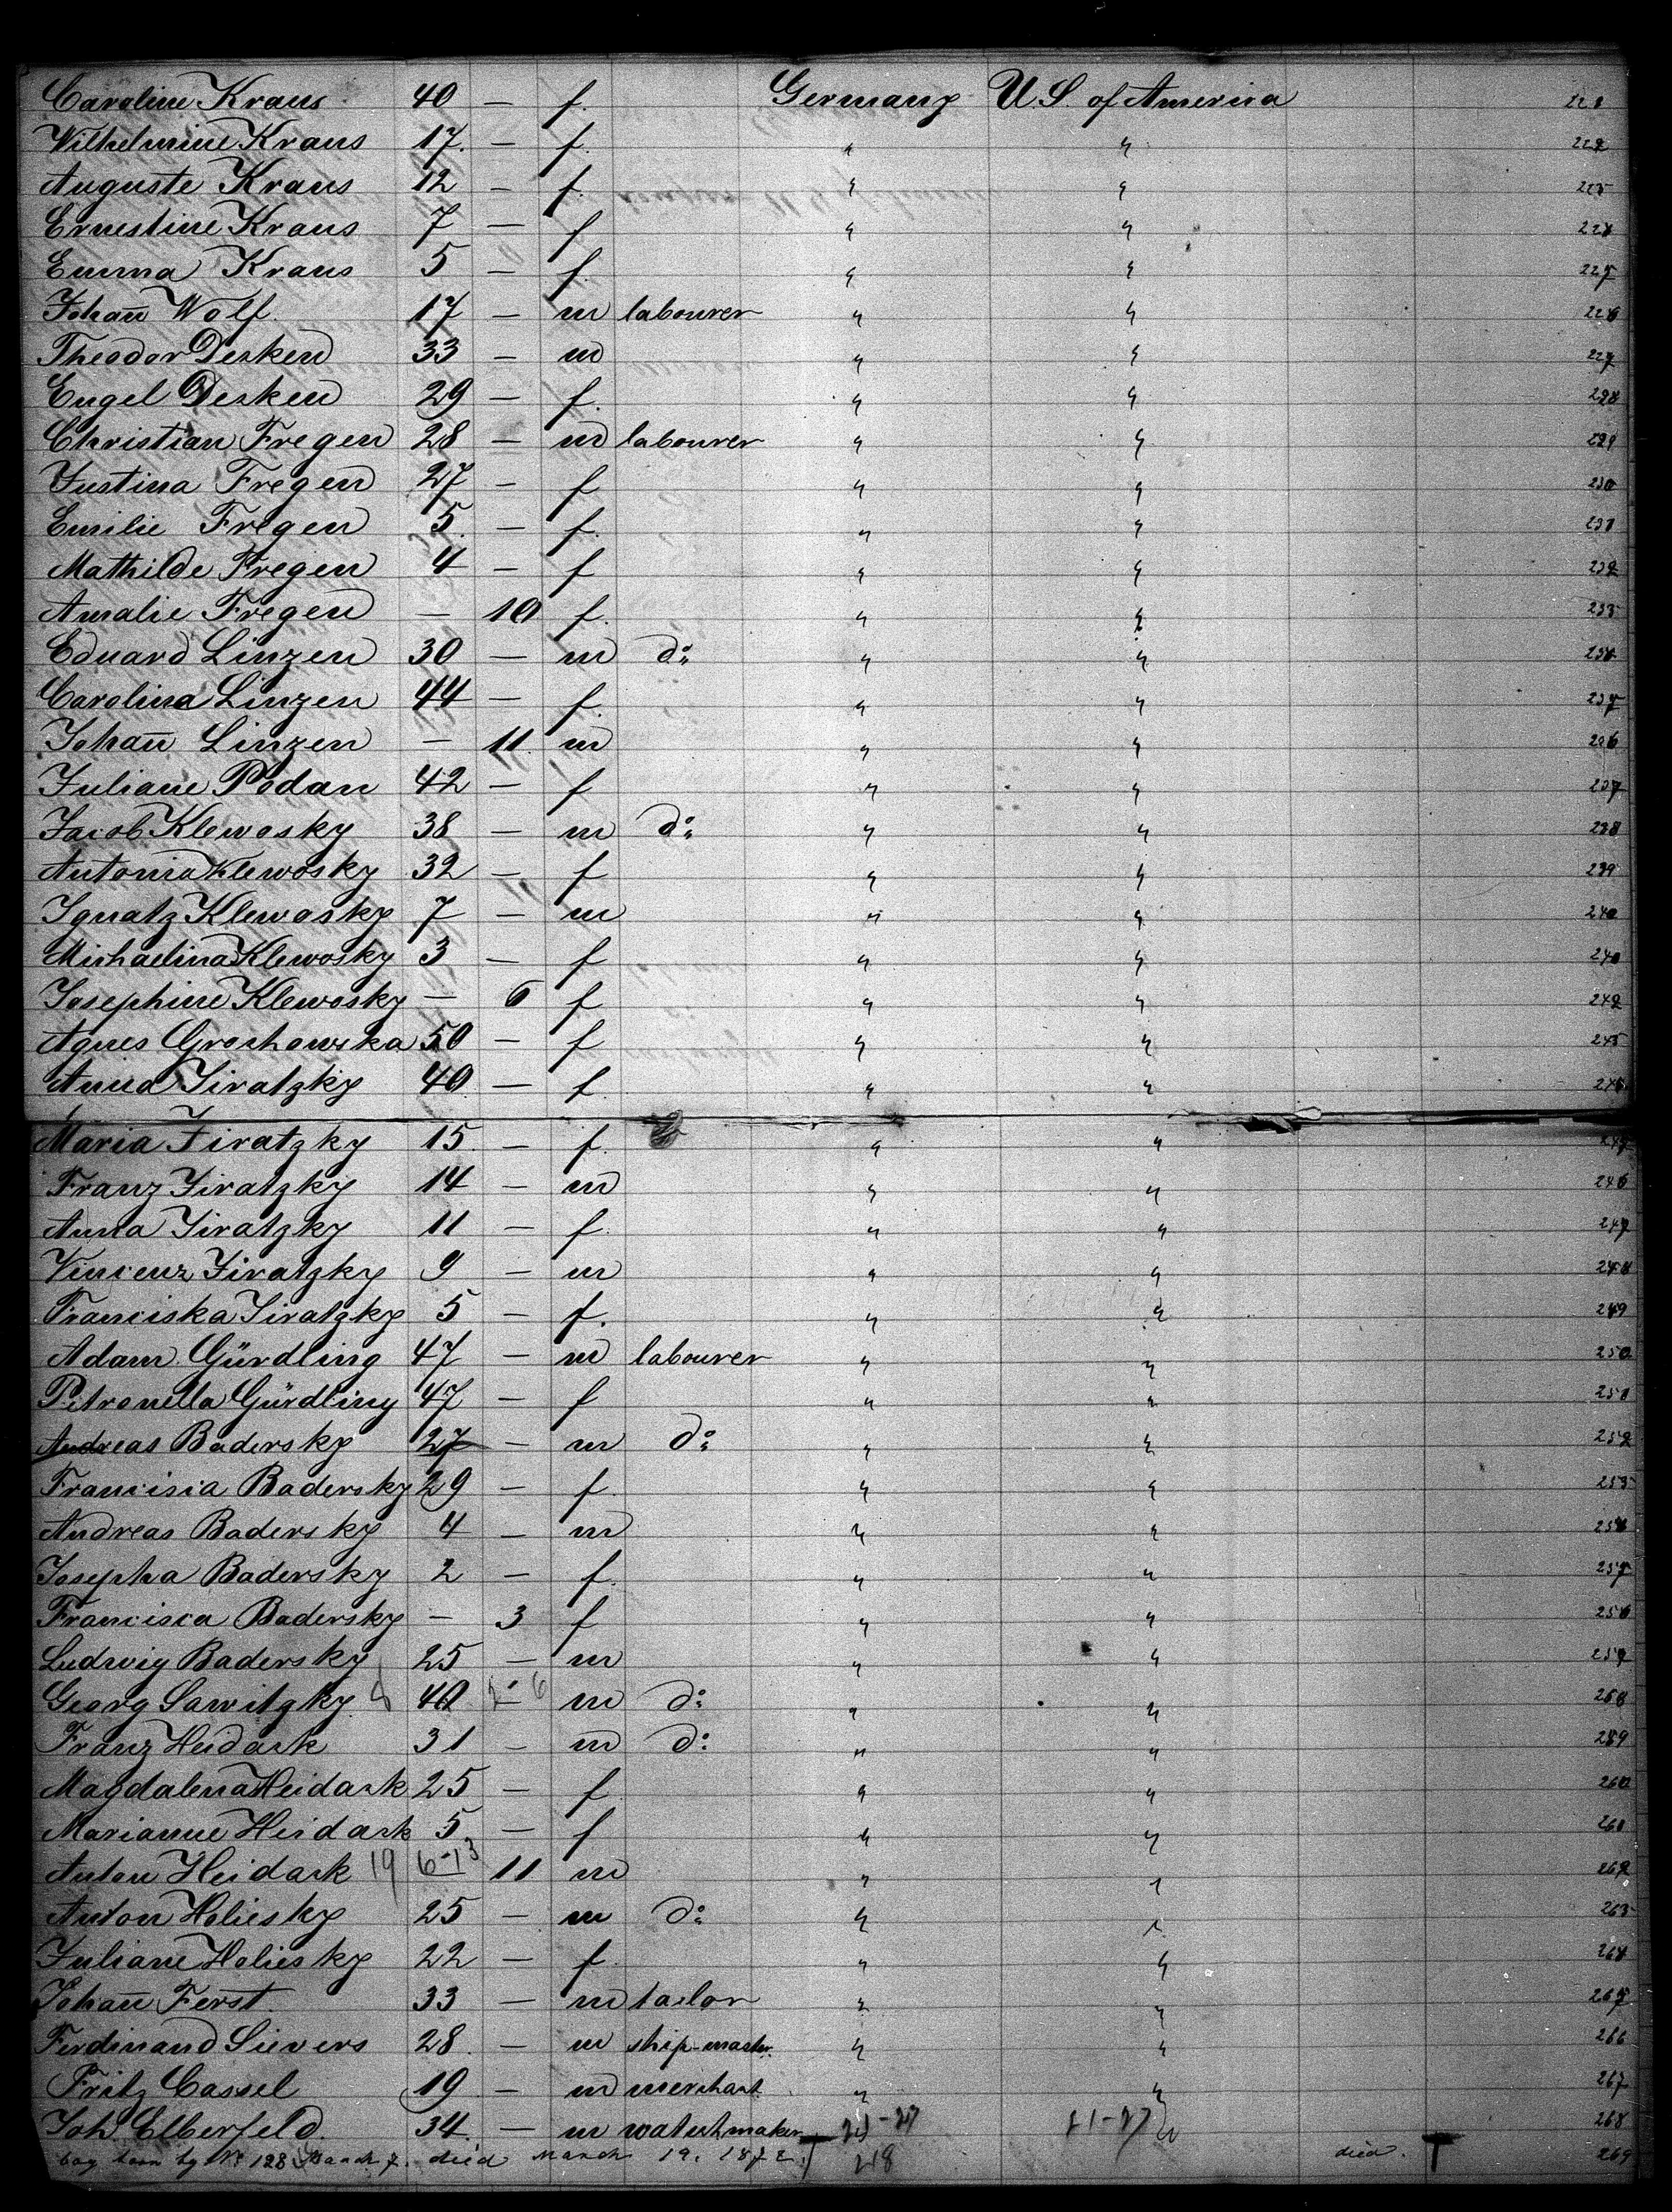 Caroline Kraus 40 — f. Germany U.S. of America
Wilhelmine Kraus 17. — f. " " 222
Auguste Kraus 12 — f. " "
Ernestine Kraus 7 — f " "
Emma Kraus 5 — f. " "
Johañ Wolf. 17 — m labourer " "
Theodor Desken 33 — m " " 227
Engel Desken 29 — f. " " 228
Christian Fregen 28 — m labourer " " 229
Justina Fregen 27 — f " " 230
Emilie Fregen 5. — f. " " 231
Mathilde Fregen 4 — f " " 232
Amalie Fregen — 10 f. " " 233
Eduard Linzen 30 — m do " "
Carolina Linzen 44 — f. " "
Johañ Linzen — 11. m " " 236
Juliane Podan 42 — f " " 237
Jacob Klewosky 38 — m do " " 238
Antonia Klewosky 32 — f " " 239
Ignatz Klewosky 7 — m " " 240
Michaelina Klewosky 3 — f " "
Josephine Klewosky — 6 f " " 242
Agnes Grochowska 50 — f " "
Anna Jiratzky 40. — f. " "
Maria Jiratzky 15. — f. " "
Franz Jiratzky 14 — m " " 246
Anna Jiratzky 11 — f. " " 247
Vincenz Jiratzky 9 — m " " 248
Franciska Jiratzky 5 — f. " " 249
Adam Gürdling 47 — m labourer " " 250
Petronella Gürdling 47 — f " " 251
Andreas Badersky 27 — m do " " 252
Francisia Badersky 29 — f. " " 253
Andreas Badersky 4 — m " "
Josepha Badersky 2 — f. " "
Francisca Badersky — 3 f " " 256
Ludwig Badersky 25 — m " " 257
Georg Sawitzky 40 — m do " " 258
Franz Heidask 31 — m do " " 259
Magdalena Heidask 25 — f " " 260
Marianne Heidask 5 — f " " 261
Anton Heidask 19 6-13 11 m " " 262
Anton Holiesky 25 — m do " " 263
Juliane Holiesky 22 — f. " " 264
Johañ Ferst. 33 — m tailor " "
Ferdinand Sievers 28. — m ship-master. " " 266
Fritz Cassel 19 — m merchant " " 267
Joh. Elberfeld. 34. — m watchmaker " 21-27 " 268
boy born by No 128 March 7. died March 19. 1872. 218 died. 269